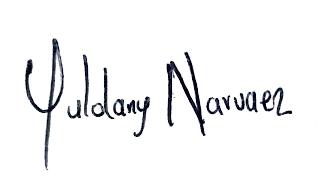 Yuldany Narvaez